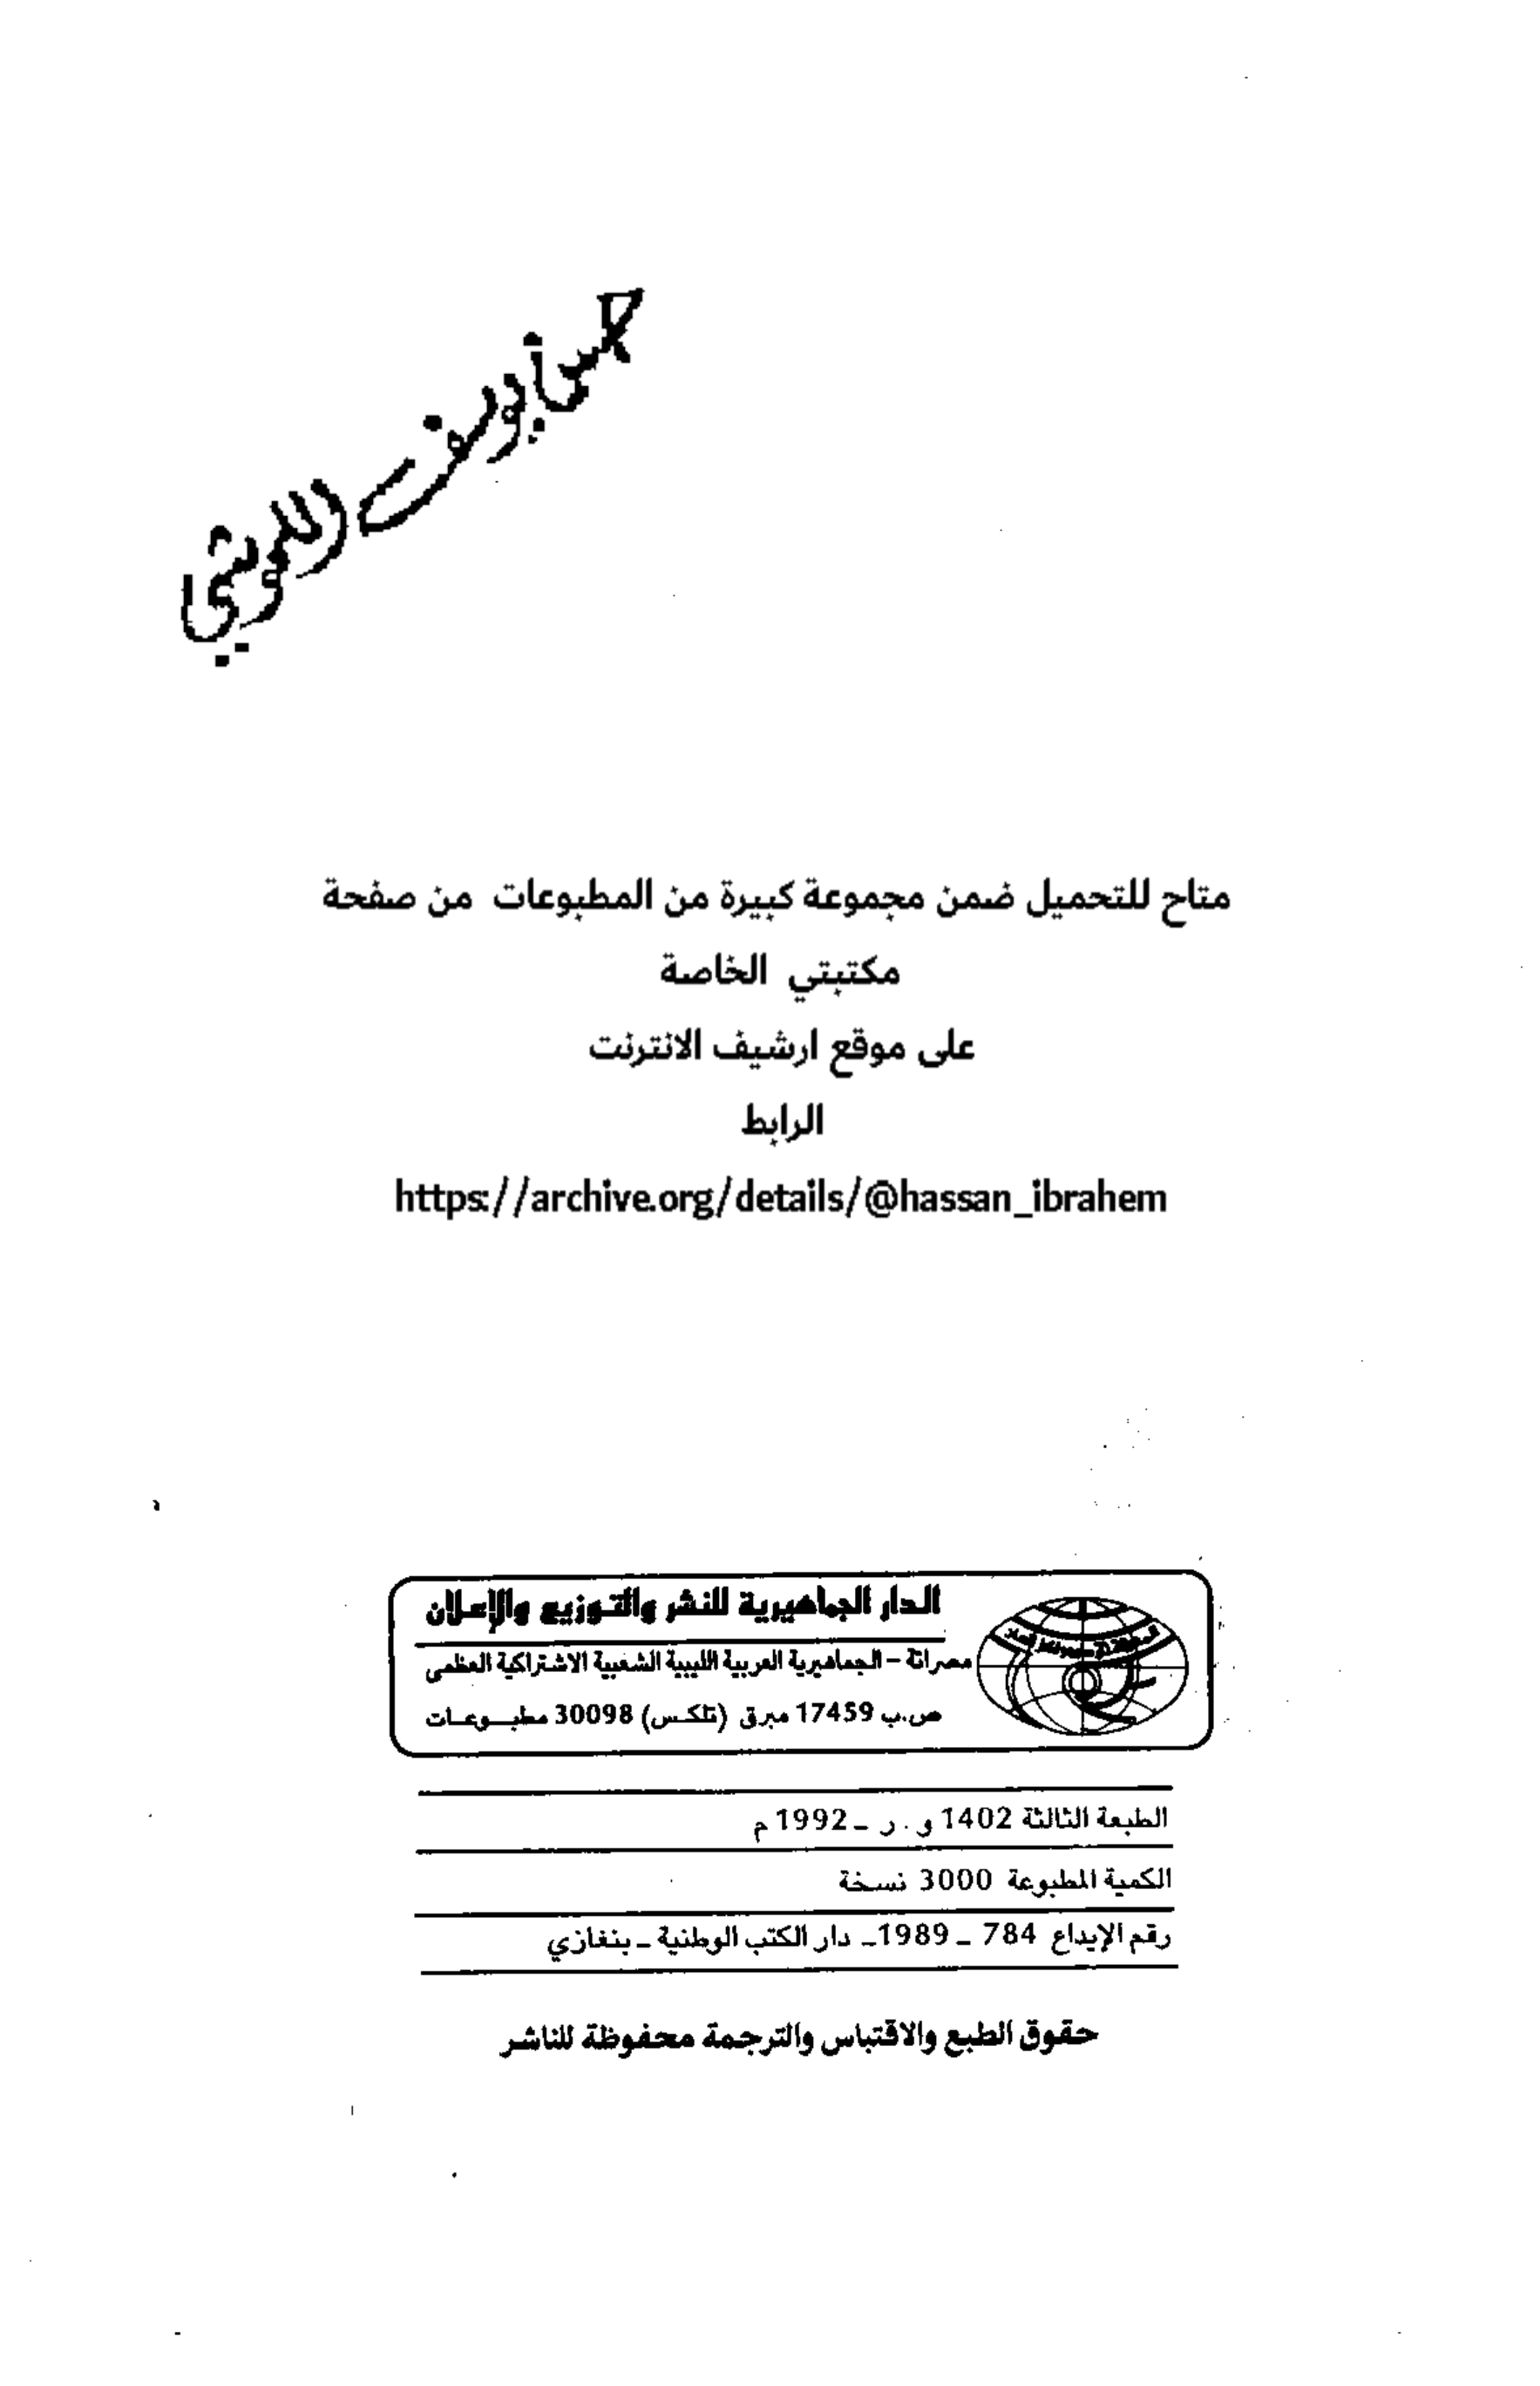 متاح للتحميل ضمن مجموعة كبيرة من المطبوعات من صفحة
مكتبتي الخاصة
على موقع ارشيف الانترنت
الرابط
https://archive.org/details/@hassan_ibrahem
الدار الجماهيرية للنشر والتوزيع والإعلان
مصراتة - الجماهيرية العربية الليبية الشعبية الاشتراكية العظمى
ص.ب 17459 مبرق (تلكس) 30098 مطبوعات
الطبعة الثالثة 1402 و.ر - 1992 م
الكمية المطبوعة 3000 نسخة
رقم الإيداع 784 - 1989 - دار الكتب الوطنية - بنغازي
حقوق الطبع والاقتباس والترجمة محفوظة للناشر